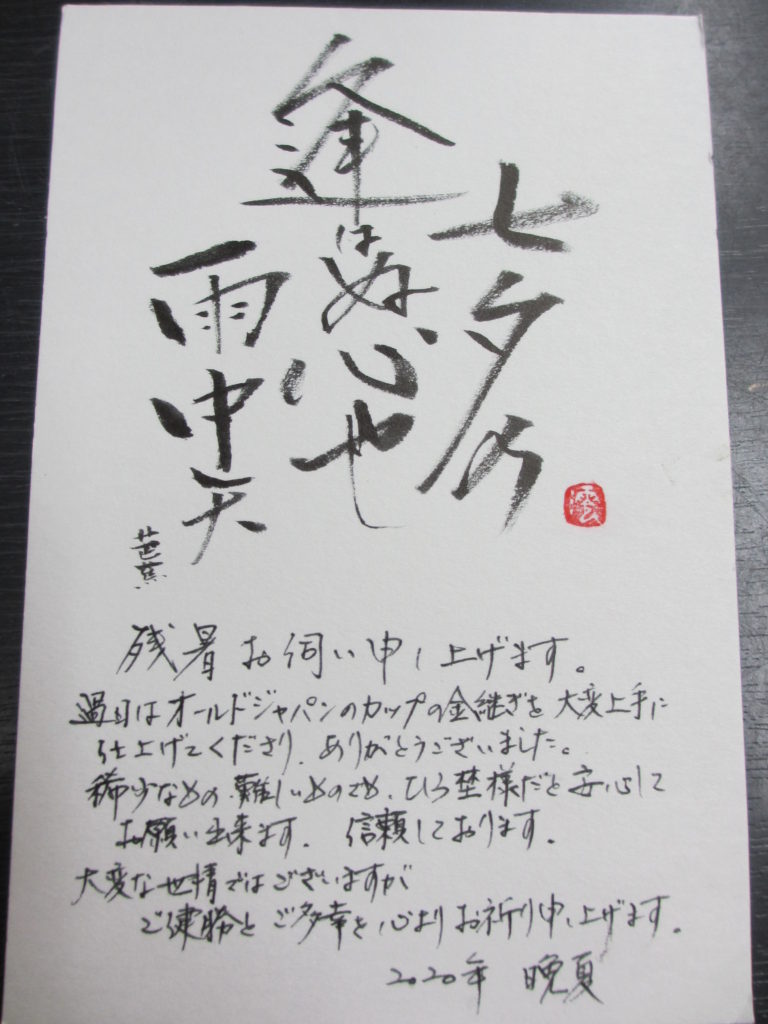 七夕の
逢はぬ心也
雨中天
芭蕉
残暑お伺い申し上げます。
過日はオールドジャパンのカップの金継ぎを大変上手に
仕上げてくださり、ありがとうございました。
稀少なもの、難しいものでも、ひろ埜様だと安心して
お願い出来ます。信頼しております。
大変な世情ではございますが
ご健勝とご多幸を心よりお祈り申し上げます。
2020年 晩夏